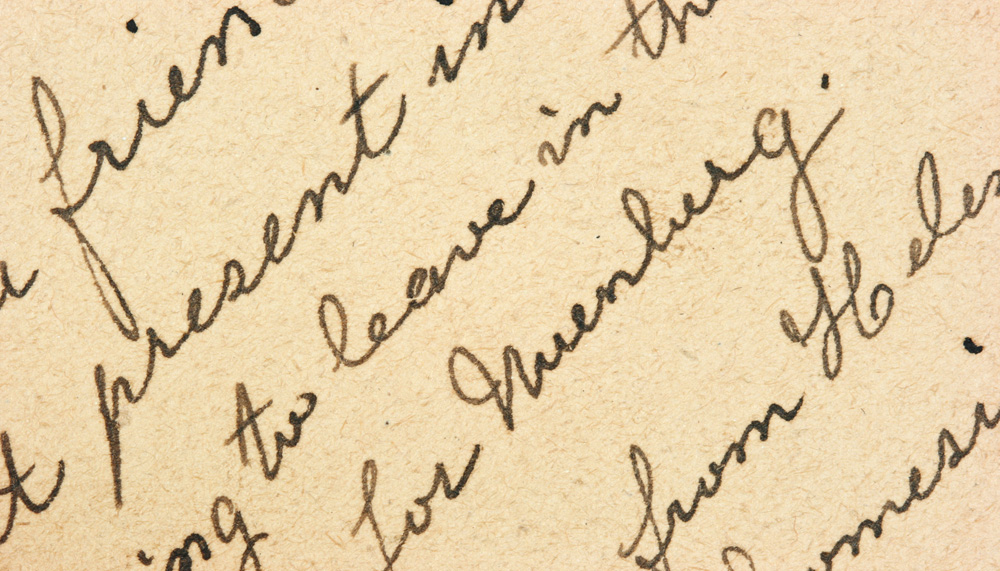 a frien
t present in
ing to leave in th
for Nuenburg.
from Helen
omesi